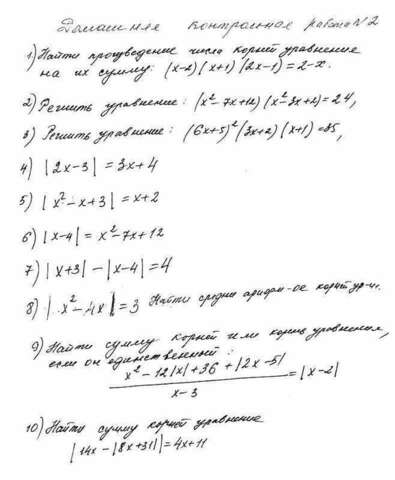 Домашняя контрольная работа N 2
1) Найти произведение числа корней уравнения
на их сумму: (x-2)(x+1)(2x-1)=2-x.
2) Решить уравнение: (x²-7x+12)(x²-3x+2)=24,
3) Решить уравнение: (6x+5)²(3x+2)(x+1)=35,
4) |2x-3|=3x+4
5) |x²-x+3|=x+2
6) |x-4|=x²-7x+12
7) |x+3|-|x-4|=4
8) |x²-4x|=3 Найти средне арифм-ое корней ур-я.
9) Найти сумму корней или корень уравнения,
если он единственный:
x²-12|x|+36+|2x-5|
x-3
=|x-2|
10) Найти сумму корней уравнения
|14x-|8x+31||=4x+11